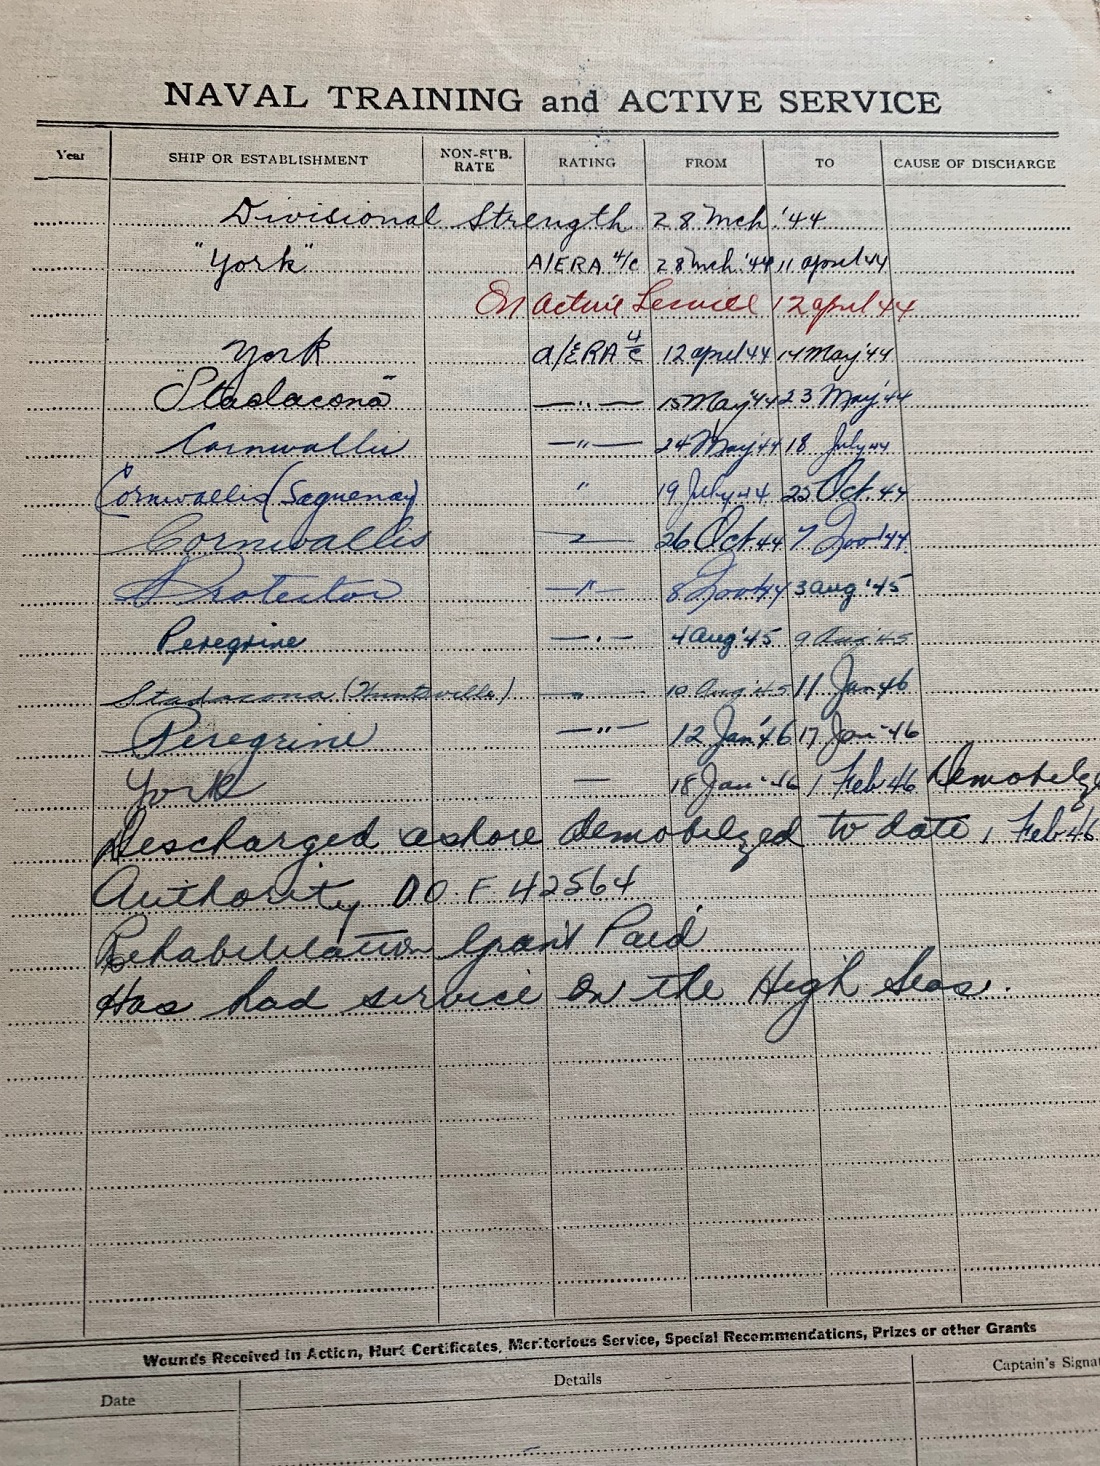 NAVAL TRAINING and ACTIVE SERVICE
Year SHIP OR ESTABLISHMENT NON-SUB. RATE RATING FROM TO CAUSE OF DISCHARGE
Divisional Strength 28 Mch. '44
"York" A/ERA 4/c 28 Mch '44 11 April 44
On Active Service 12 April 44
York a/ERA 4/c 12 april 44 14 May '44
"Stadacona" —"— 15 May '44 23 May '44
Cornwallis —"— 24 May '44 18 July 44
Cornwallis (Saguenay) " 19 July 44 25 Oct. 44
Cornwallis 26 Oct. 44 7 Nov 44
Protector —"— 8 Nov 44 3 aug '45
Peregrine —"— 4 Aug '45 9 Aug '45
Stadacona (Huntsville) —"— 10 Aug '45 11 Jan 46
Peregrine —"— 12 Jan '46 17 Jan '46
York — 18 Jan - 46 1 Feb 46 Demobilze
Descharged ashore demobelzed to date, Feb 46
Authority D.O. F 42564
Rehabilitation Grant Paid
Has had service on the High Seas.
Wounds Received in Action, Hurt Certificates, Meritorious Service, Special Recommendations, Prizes or other Grants
Date Details Captain's Signa